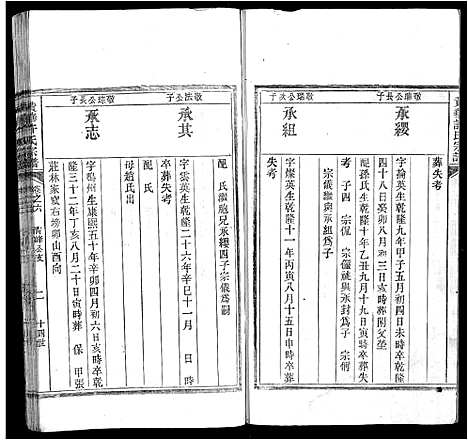 葬失考
敬瑞公長子
承纓
字掄英生乾隆九年甲子五月初四日寅時卒乾隆
四十八日癸卯八月初三日亥時葬閣父塋
配孫氏生乾隆十年乙丑九月十九日亥時卒葬失
考 子四 宗侃 宗儀繼與承封為子 宗侗
宗儀繼與承組為子
敬瑞公次子
承組
字燦英生乾隆十一年丙寅八月十五日申時卒葬
失考
敬法公子
承其
字雲英生乾隆二十六年辛巳十一月 日 時
卒葬失考
配 氏 繼胞兄承纓四子宗儀為嗣
敬瑞公長子
承志
配 氏
母趙氏出
字鶴州生康熙五十年辛卯四月初六日亥時卒乾
隆三十二年丁亥八月二十日寅時葬 保 甲張
莊林家窰右塝卯山酉向
許氏宗譜
卷之六
十四世